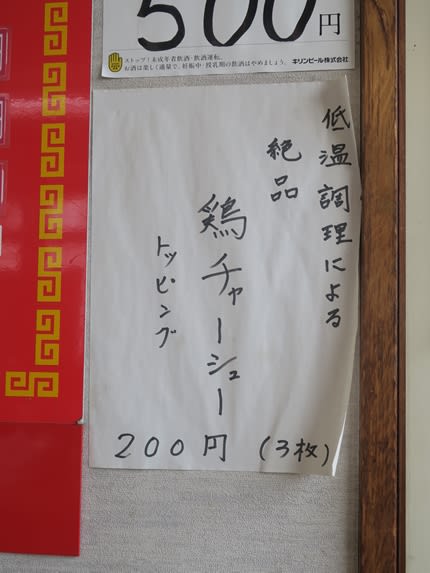 500円
ストップ!未成年者飲酒・飲酒運転。
お酒は楽しく適量で。妊娠中・授乳期の飲酒はやめましょう。
キリンビール株式会社
低温調理による
絶品
鶏チャーシュー
トッピング
200円(3枚)